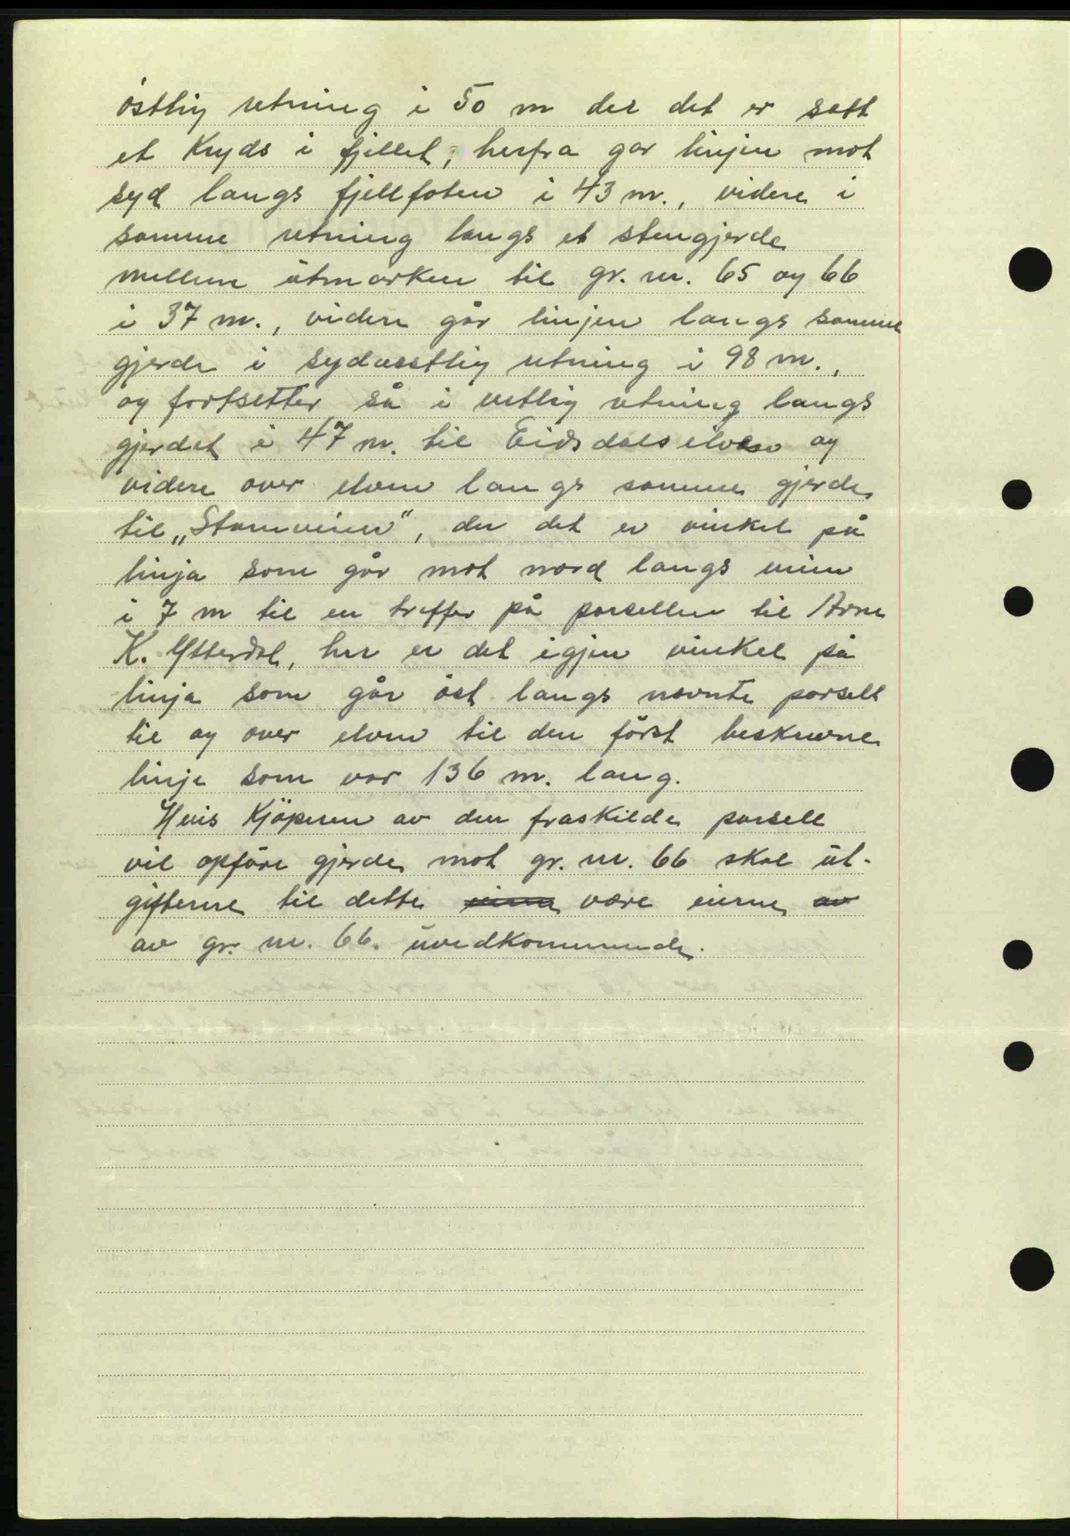 östlig retning i 50 m der det er satt
et Kryds i fjellet, herfra gar linjen mot
syd langs fjellfoten i 43 m., videre i
samme retning langs et stengjerde
mellem utmarken til gr. nr. 65 og 66
i 37 m., videre går linjen langs samme
gjerde i sydvestlig retning i 98 m.,
og fortsetter så i vestlig retning langs
gjerdet i 47 m. til Eidsdalselven og
videre over elven langs samme gjerde
til „Stamveien”, der det er vinkel på
linja som går mot nord langs veien
i 7 m til en treffer på parsellen til Arne
K. Ytterdal, her er det igjen vinkel på
linja som går öst langs nevnte parsell
til og over elven til den först beskrevne
linje som var 136 m. lang.
Hvis Kjöperen av den fraskilde parsell
vil opföre gjerde mot gr. nr. 66 skal ut-
gifterne til dette være eierne av
av gr. nr. 66. uvedkommende.